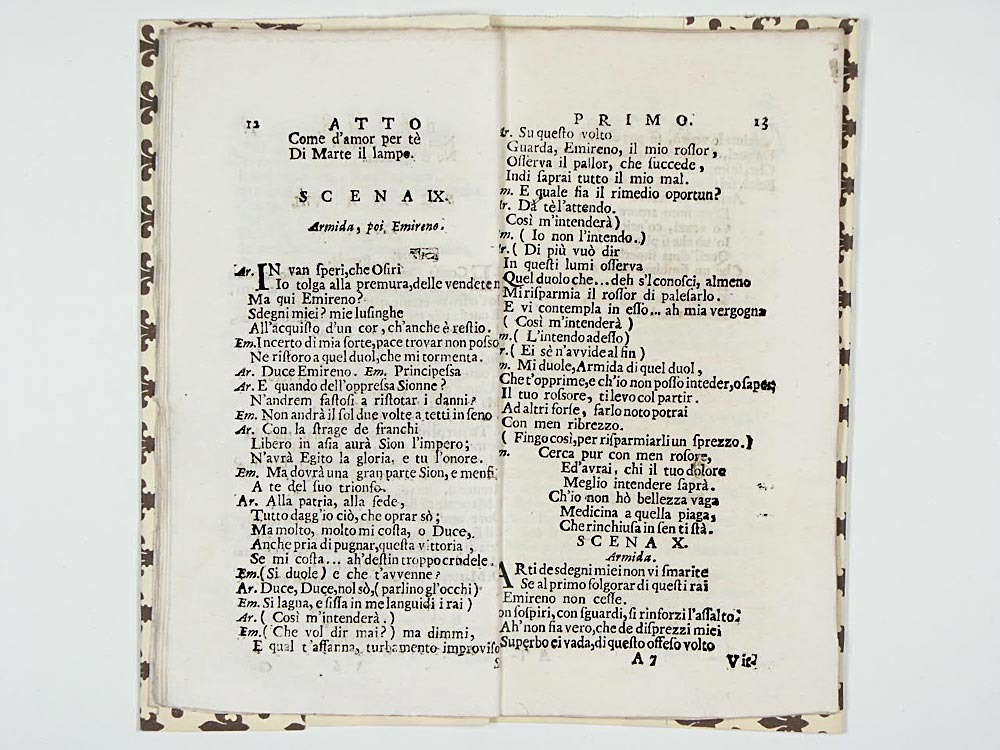 12 ATTO
Come d'amor per tè
Di Marte il lampo.
SCENA IX.
Armida, poi Emireno.
Ar. IN van speri, che Osiri
Io tolga alla premura, delle vendete n
Ma qui Emireno?
Sdegni miei? mie lusinghe
All'acquisto d'un cor, ch'anche è restio.
Em. Incerto di mia sorte, pace trovar non posso
Ne ristoro a quel duol, che mi tormenta.
Ar. Duce Emireno. Em. Principessa
Ar. E quando dell'oppressa Sionne?
N'andrem fastosi a ristorar i danni?
Em. Non andrà il sol due volte a tetti in seno
Ar. Con la strage de franchi
Libero in asia aurà Sion l'impero;
N'avrà Egito la gloria, e tu l'onore.
Em. Ma dovrà una gran parte Sion, e menfi
A te del suo trionfo.
Ar. Alla patria, alla fede,
Tutto dagg'io ciò, che oprar sò;
Ma molto, molto mi costa, o Duce,
Anche pria di pugnar, questa vittoria,
Se mi costa... ah' destin troppo crudele.
Em. (Si duole) e che t'avvenne?
Ar. Duce, Duce, nol sò, (parlino gl'occhi)
Em. Si lagna, e fissa in me languidi i rai)
Ar. (Così m'intenderà.)
Em. (Che vol dir mai?) ma dimmi,
E qual t'affanna, turbamento improviso
PRIMO. 13
Ar. Su questo volto
Guarda, Emireno, il mio rossor,
Osserva il pallor, che succede,
Indi saprai tutto il mio mal.
m. E quale fia il rimedio oportun?
r. Da tè l'attendo.
Così m'intenderà)
m. (Io non l'intendo.)
r. (Di più vuò dir
In questi lumi osserva
Quel duolo che... deh s'l conosci, almeno
Mi risparmia il rossor di palesarlo.
E vi contempla in esso... ah mia vergogna
(Così m'intenderà)
m. (L'intendo adesso)
r. (Ei sè n'avvide al fin)
m. Mi duole, Armida di quel duol,
Che t'opprime, e ch'io non posso inteder, o saper;
Il tuo rossore, ti levo col partir.
Ad altri forse, farlo noto potrai
Con men ribrezzo.
(Fingo così, per risparmiarli un sprezzo.)
m. Cerca pur con men rosore,
Ed'avrai, chi il tuo dolore
Meglio intendere saprà.
Ch'io non hò bellezza vaga
Medicina a quella piaga,
Che rinchiusa in sen ti stà.
SCENA X.
Armida.
ARti de sdegni miei non vi smarite
Se al primo folgorar di questi rai
Emireno non cesse.
on sospiri, con sguardi, si rinforzi l'assalto:
Ah' non fia vero, che de disprezzi miei
Superbo ei vada, di questo offeso volto
A 7